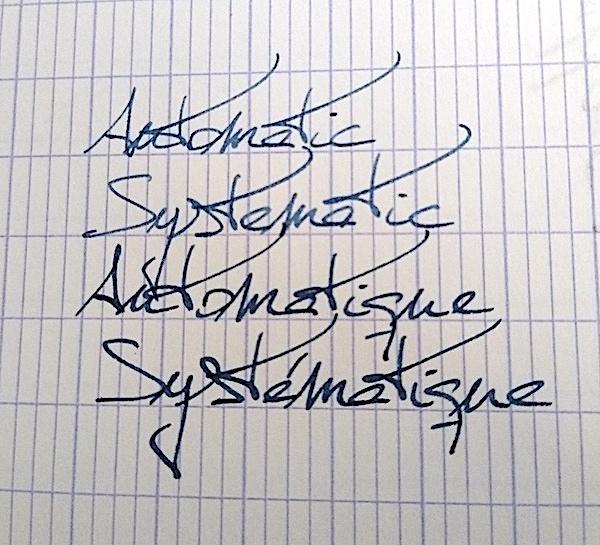 Automatic
Systematic
Automatique
Systématique